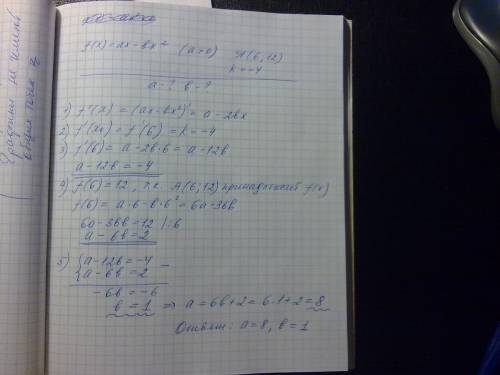 f(x) = ax - bx² (a≠0) A(6; 12)
k = -4
a - ? b - ?
1) f'(x) = (ax - bx²)' = a - 2bx
2) f'(x₀) = f'(6) = k = -4
3) f'(6) = a - 2b·6 = a - 12b
a - 12b = -4
4) f(6) = 12, т.к. A(6; 12) принадлежит f(x)
f(6) = a·6 - b·6² = 6a - 36b
6a - 36b = 12 | :6
a - 6b = 2
5) { a - 12b = -4
{ a - 6b = 2 −
-6b = -6
b = 1 ⇒ a = 6b + 2 = 6·1 + 2 = 8
Ответ: a = 8, b = 1
общих точек